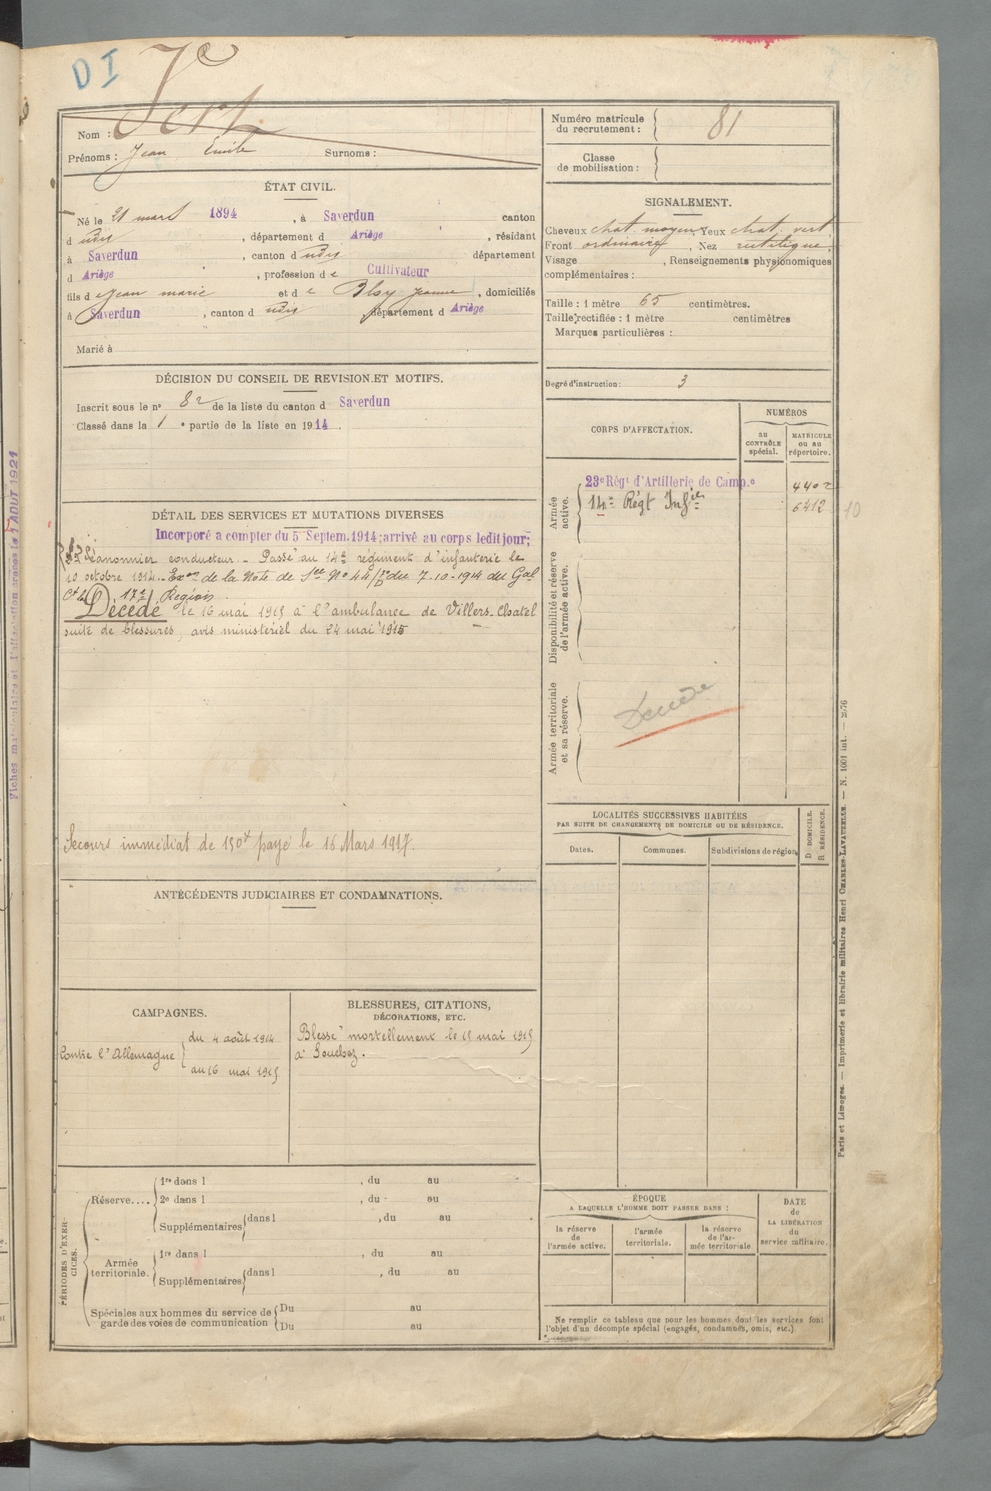 DI
Nom : Vert
Prénoms : Jean Emile Surnoms :
ÉTAT CIVIL.
Né le 21 mars 1894, à Saverdun canton
d udis, département d Ariège, résidant
à Saverdun, canton d udis département
d Ariège, profession d e Cultivateur
fils d e Jean marie et d e Jeanne, domiciliés
à Saverdun, canton d udis département d Ariège
Marié à
DÉCISION DU CONSEIL DE REVISION ET MOTIFS.
Inscrit sous le n° 82 de la liste du canton d Saverdun
Classé dans la 1e partie de la liste en 1914.
DÉTAIL DES SERVICES ET MUTATIONS DIVERSES
Incorporé a compter du 5 Septem. 1914; arrivé au corps ledit jour;
conducteur. - Passé au 14e régiment d'infanterie le
10 octobre 1914. - Exon de la Note de Sce No 44/ du 7-10-1914 du Gal
Ct la 17e Région.
Décédé le 16 mai 1915 à l'ambulance de Villers-Chatel
suite de blessures, avis ministériel du 24 mai 1915
Secours immédiat de 150f payé le 16 Mars 1917.
ANTÉCÉDENTS JUDICIAIRES ET CONDAMNATIONS.
CAMPAGNES.
Contre l'Allemagne { du 4 août 1914
au 16 mai 1915
BLESSURES, CITATIONS,
DÉCORATIONS, ETC.
Blessé mortellement le 15 mai 1915
à Souchez.
PÉRIODES D'EXERCICES.
Réserve.... 1re dans l , du au
2e dans l , du au
Supplémentaires dans l , du au
Armée territoriale. 1re dans l , du au
Supplémentaires dans l , du au
Spéciales aux hommes du service de garde des voies de communication
Du au
Du au
Numéro matricule
du recrutement : 81
Classe
de mobilisation :
SIGNALEMENT.
Cheveux chat. moyen Yeux chat. vert
Front ordinaire, Nez rectiligne
Visage , Renseignements physionomiques
complémentaires :
Taille : 1 mètre 65 centimètres.
Taille rectifiée : 1 mètre centimètres
Marques particulières :
Degré d'instruction : 3
CORPS D'AFFECTATION.
NUMÉROS
au
CONTRÔLE
spécial.
MATRICULE
ou au
répertoire.
Armée
active.
23e Régt d'Artillerie de Camp.e 4402
14e Régt Infie 6412 10
Disponibilité et réserve
de l'armée active.
Armée territoriale
et sa réserve.
Décédé
LOCALITÉS SUCCESSIVES HABITÉES
PAR SUITE DE CHANGEMENTS DE DOMICILE OU DE RÉSIDENCE.
Dates.
Communes.
Subdivisions de région
D DOMICILE.
R RÉSIDENCE.
ÉPOQUE
A LAQUELLE L'HOMME DOIT PASSER DANS :
la réserve
de
l'armée active.
l'armée
territoriale.
la réserve
de l'ar-
mée territoriale
DATE
de
LA LIBÉRATION
du
service militaire.
Ne remplir ce tableau que pour les hommes dont les services font
l'objet d'un décompte spécial (engagés, condamnés, omis, etc.)
Paris et Limoges. — Imprimerie et librairie militaires Henri CHARLES-LAVAUZELLE. — N. 1001 int. — 2576